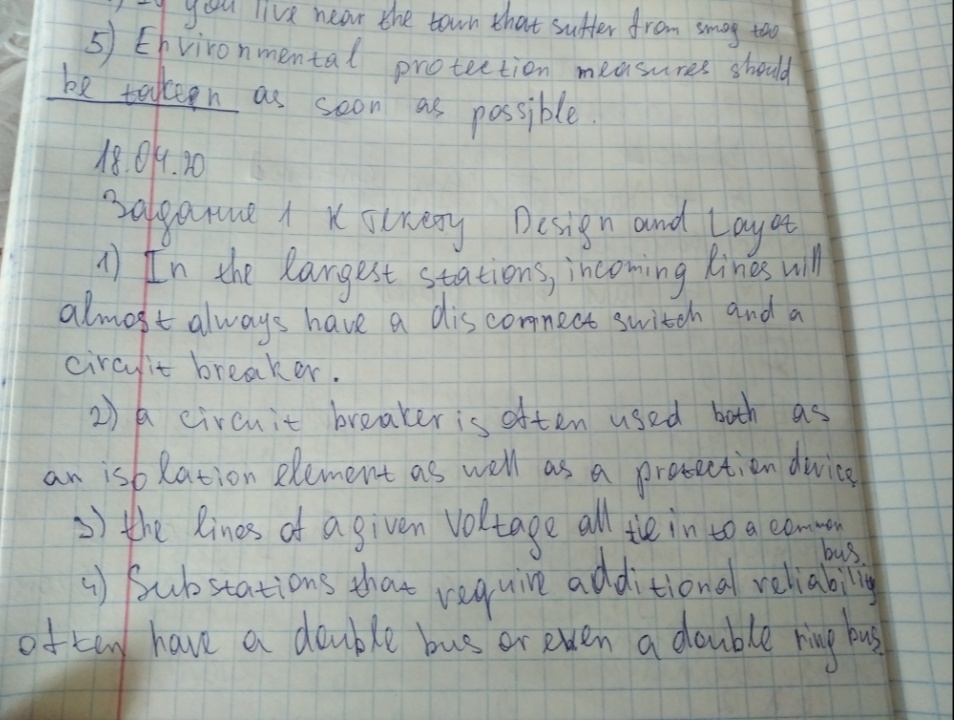 you live near the town that suffer from smog too
5) Environmental protection measures should
be taken as soon as possible.
18.04.20
Задание 1 к тексту Design and Layot
1) In the largest stations, incoming lines will
almost always have a disconnect switch and a
circuit breaker.
2) a circuit breaker is often used both as
an isolation element as well as a protection device
3) the lines of a given voltage all tie in to a common
bus.
4) Substations that require additional reliability
often have a double bus or even a double ring bus